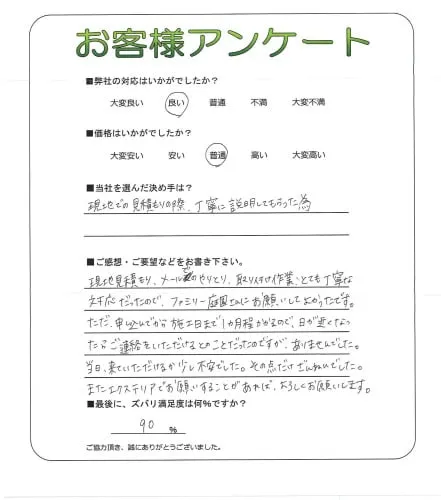 お客様アンケート
■弊社の対応はいかがでしたか?
大変良い 良い 普通 不満 大変不満
■価格はいかがでしたか?
大変安い 安い 普通 高い 大変高い
■当社を選んだ決め手は?
現地での見積もりの際、丁寧に説明してもらった為
■ご感想・ご要望などをお書き下さい。
現地見積もり、メールでのやりとり、取り付け作業、とても丁寧な
対応だったので、ファミリー庭園さんにお願いしてよかったです。
ただ、申し込んでから施工日まで1カ月程かかるので、日が近くなっ
たらご連絡をいただけるとのことだったのですが、ありませんでした。
当日、来ていただけるか少し不安でした。その点だけざんねんでした。
またエクステリアでお願いすることがあれば、よろしくお願いします。
■最後に、ズバリ満足度は何%ですか?
90 %
ご協力頂き、誠にありがとうございました。